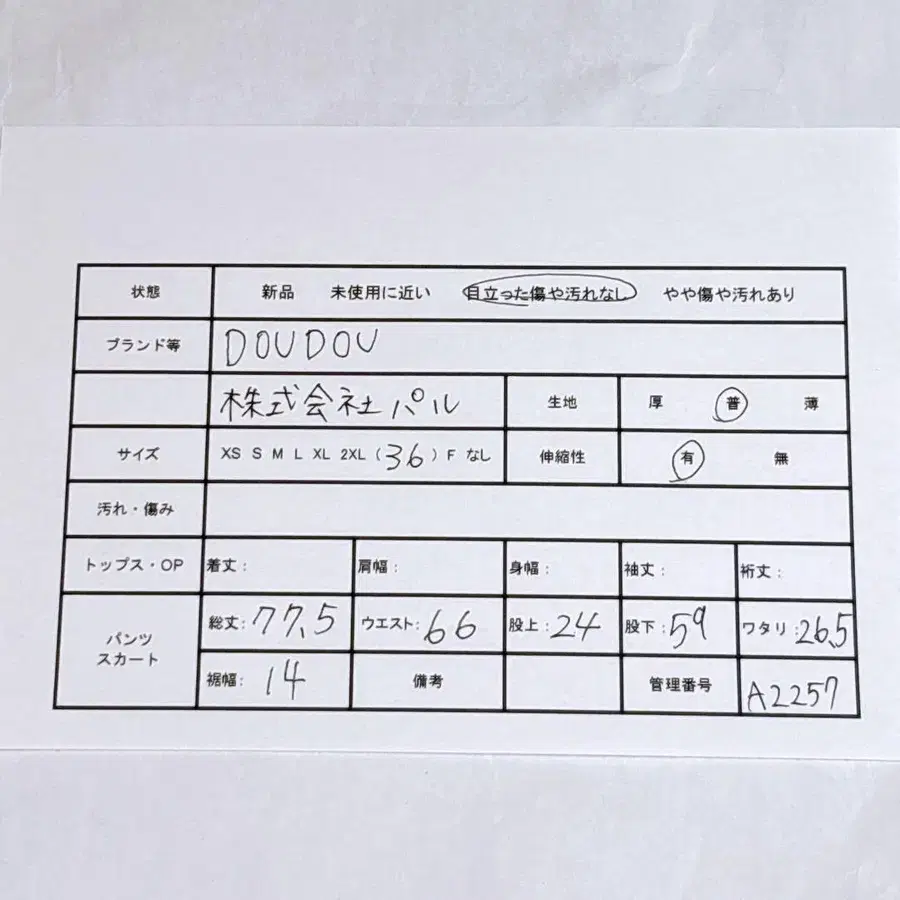 状態 新品 未使用に近い 目立った傷や汚れなし やや傷や汚れあり
ブランド等 DOUDOU
株式会社パル 生地 厚 普 薄
サイズ XS S M L XL 2XL (36) F なし 伸縮性 有 無
汚れ・傷み
トップス・OP 着丈: 肩幅: 身幅: 袖丈: 裄丈:
パンツ
スカート
総丈:77.5 ウエスト:66 股上:24 股下:59 ワタリ:26.5
裾幅:14 備考 管理番号 A2257